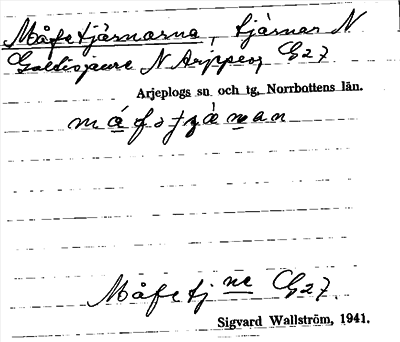 Måfetjärnarna, tjärnar N
Galtisjaure N Arjeplog G27
Arjeplogs sn och tg, Norrbottens län.
Måfetj ne G27.
Sigvard Wallström, 1941.